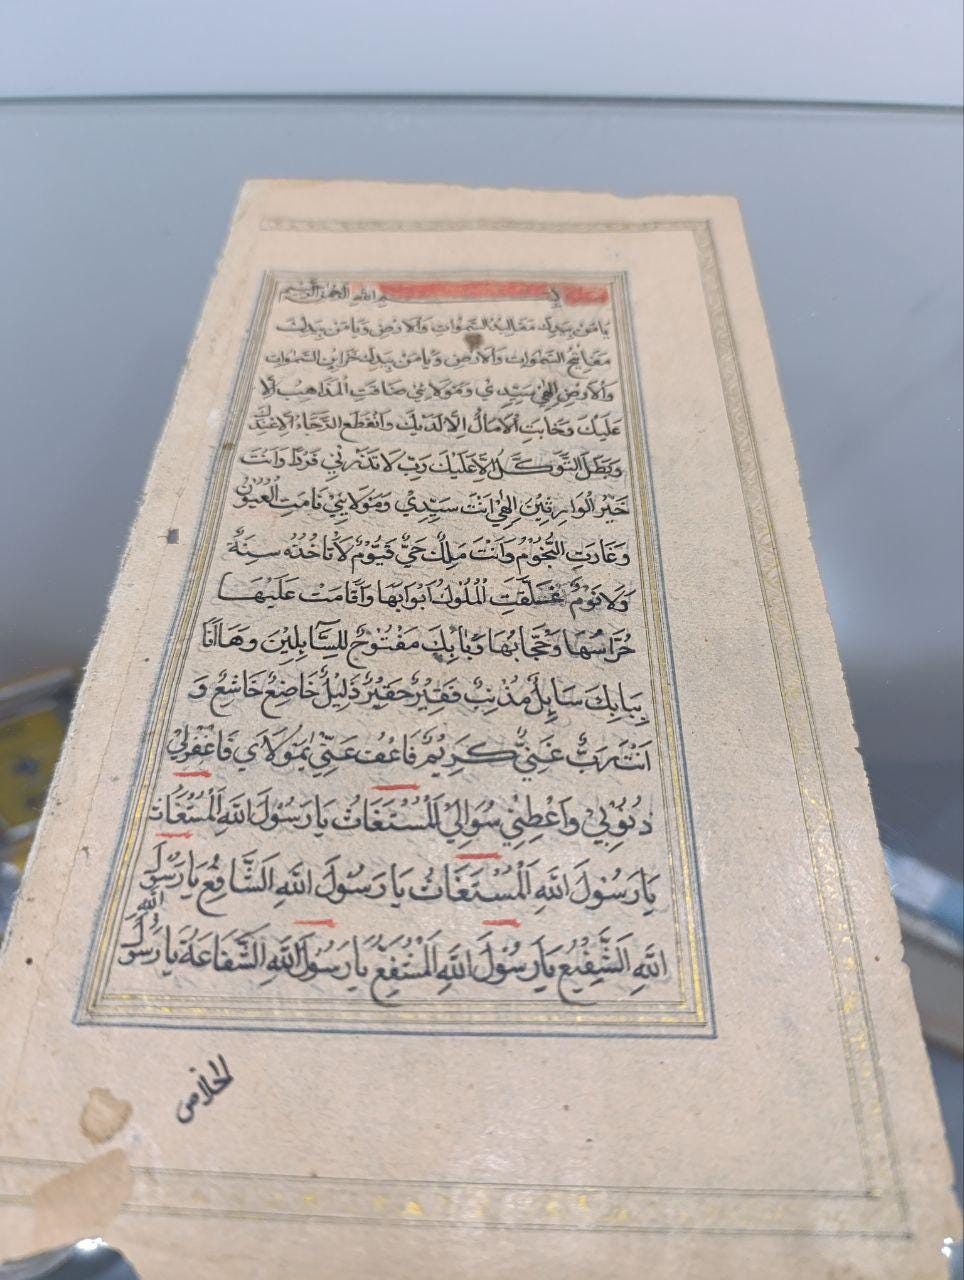 بِسْمِ اللهِ الرَّحْمٰنِ الرَّحِيْمِ
يَا مَنْ بِيَدِكَ مَقَالِيْدُ السَّمٰوَاتِ وَالْاَرْضِ وَيَا مَنْ بِيَدِكَ
مَفَاتِيْحُ السَّمٰوَاتِ وَالْاَرْضِ وَيَا مَنْ بِيَدِكَ خَزَايِنُ السَّمٰوَاتِ
وَالْاَرْضِ اِلٰهِيْ سَيِّدِيْ وَمَوْلَايِيْ ضَاقَتِ الْمَذَاهِبُ اِلَّا
عَلَيْكَ وَخَابَتِ الْاٰمَالُ اِلَّا لَدَيْكَ وَانْقَطَعَ الرَّجَاءُ اِلَّا عِنْدَكَ
وَبَطَلَ التَّوَكُّلُ اِلَّا عَلَيْكَ رَبِّ لَا تَذَرْنِيْ فَرْدًا وَاَنْتَ
خَيْرُ الْوَارِثِيْنَ اِلٰهِيْ اَنْتَ سَيِّدِيْ وَمَوْلَايِيْ نَامَتِ الْعُيُوْنُ
وَغَارَتِ النُّجُوْمُ وَاَنْتَ مَلِكٌ حَيٌّ قَيُّوْمٌ لَا تَاْخُذُهُ سِنَةٌ
وَلَا نَوْمٌ غَلَّقَتِ الْمُلُوْكُ اَبْوَابَهَا وَاَقَامَتْ عَلَيْهَا
حُرَّاسُهَا وَحُجَّابُهَا وَبَابُكَ مَفْتُوْحٌ لِلسَّايِلِيْنَ وَهَا اَنَا
بِبَابِكَ سَايِلٌ مُذْنِبٌ فَقِيْرٌ حَقِيْرٌ ذَلِيْلٌ خَاضِعٌ خَاشِعٌ وَ
اَنْتَ رَبٌّ غَنِيٌّ كَرِيْمٌ فَاعْفُ عَنِّيْ يَا مَوْلَايَ فَاغْفِرْلِيْ
ذُنُوْبِيْ وَاَعْطِنِيْ سُوَالِيْ اَلْمُسْتَغَاثُ يَا رَسُوْلَ اللهِ اَلْمُسْتَغَاثُ
يَا رَسُوْلَ اللهِ اَلْمُسْتَغَاثُ يَا رَسُوْلَ اللهِ اَلشَّافِعُ يَا رَسُوْلَ اللهِ
اللهِ اَلشَّفِيْعُ يَا رَسُوْلَ اللهِ اَلْمُشَفَّعُ يَا رَسُوْلَ اللهِ اَلشَّفَاعَةُ يَا رَسُوْلَ
الخلاص